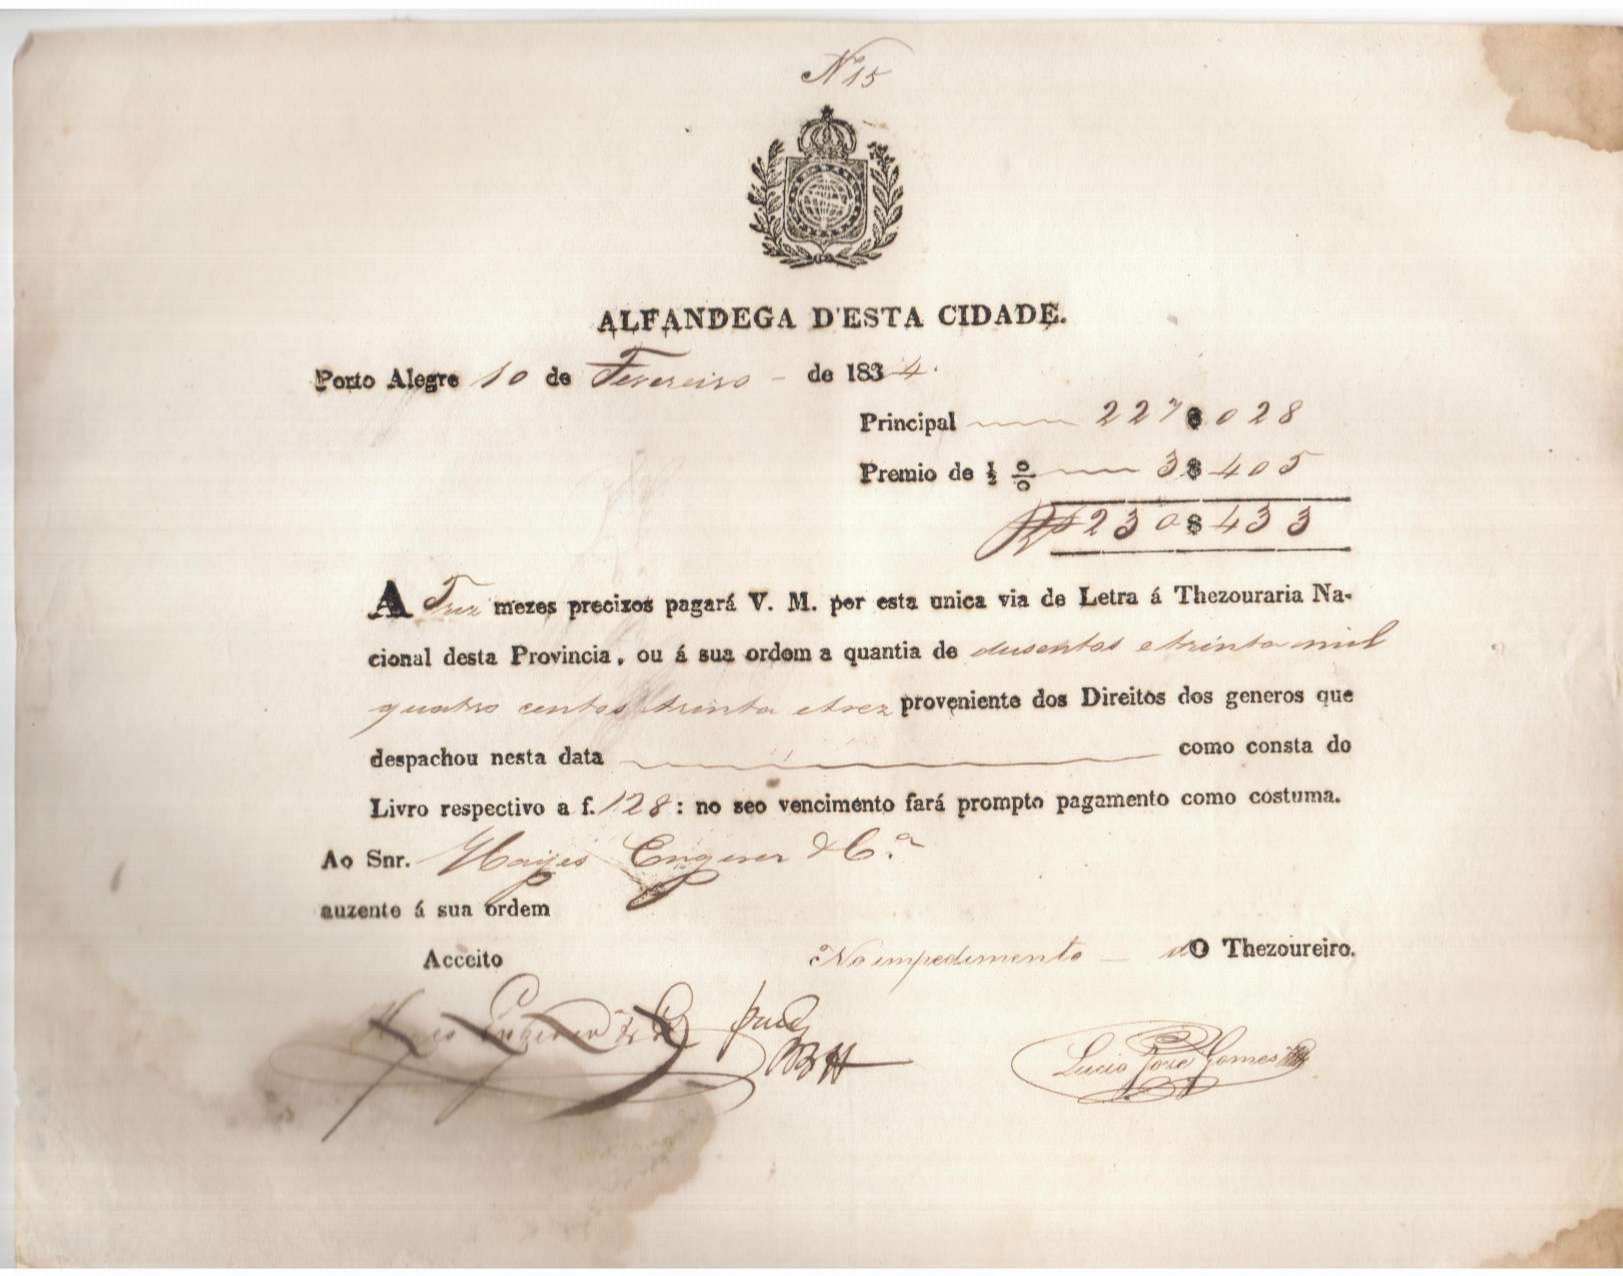 Nº 15
ALFANDEGA D'ESTA CIDADE.
Porto Alegre 10 de Fevereiro - de 1834.
Principal 227$028
Premio de ½ % 3$405
Rs 230$433
A Trez mezes precizos pagará V. M. por esta unica via de Letra á Thezouraria Na-
cional desta Provincia, ou á sua ordem a quantia de dusentos e trinta mil
quatro centos trinta e trez proveniente dos Direitos dos generos que
despachou nesta data como consta do
Livro respectivo a f. 128: no seo vencimento fará prompto pagamento como costuma.
Ao Snr. Hayes Engerer & C.ª
auzente á sua ordem
Acceito
No impedimento - do Thezoureiro.
Hayes Engerer & Cª
Lucio Joze Gomes